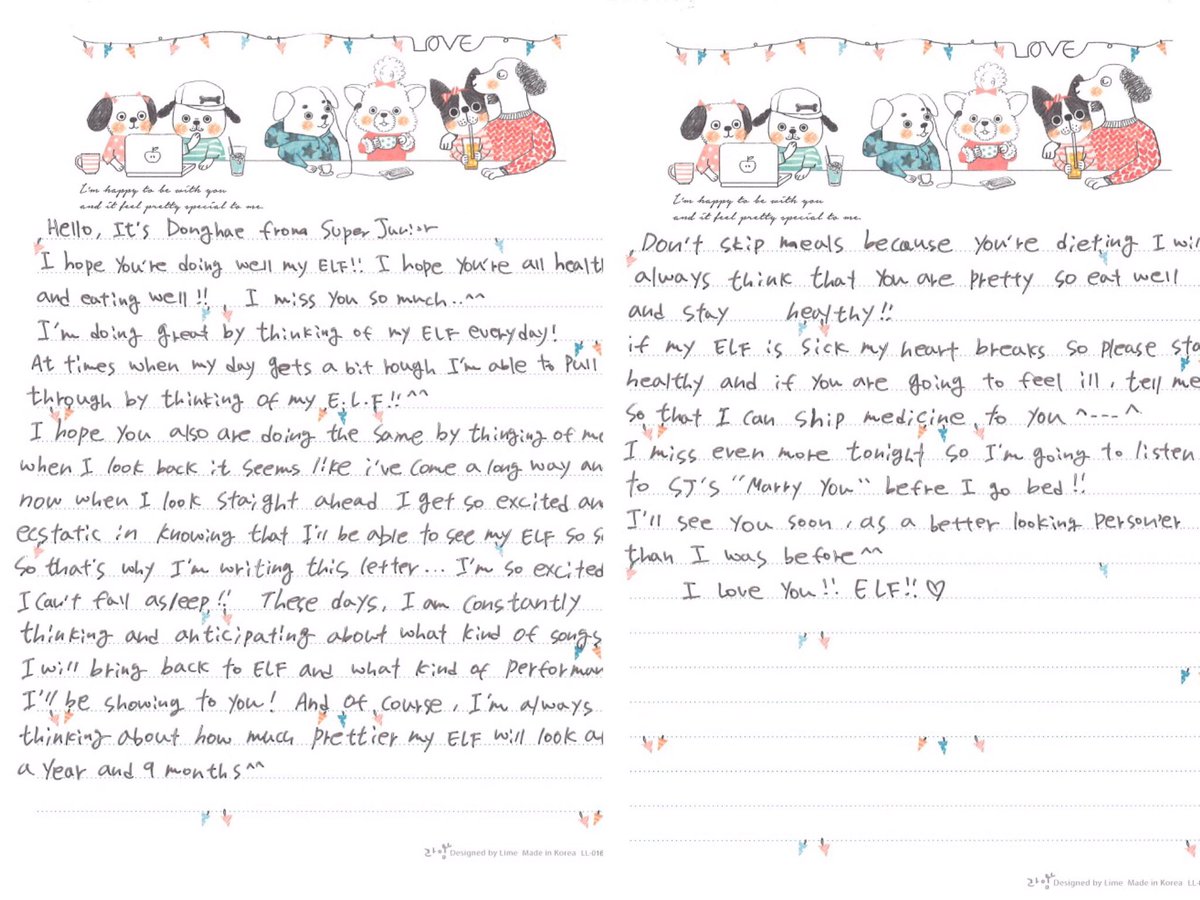 LOVE
I'm happy to be with you
and it feel pretty special to me.
Hello, It's Donghae from a Super Junior
I hope you're doing well my ELF!! I hope you're all healt
and eating well!!, I miss you so much..^^
I'm doing great by thinking of my ELF everyday!
At times when my day gets a bit rough I'm able to pull
through by thinking of my E.L.F!!^^
I hope you also are doing the same by thinging of me
when I look back it seems like i've come a long way an
now when I look staight ahead I get so excited an
ecstatic in knowing that I'll be able to see my ELF so s
so that's why I'm writing this letter... I'm so excited
I can't fall asleep!! These days, I am constantly
thinking and anticipating about what kind of songs
I will bring back to ELF and what kind of performan
I'll be showing to you! And of course, I'm always
thinking about how much prettier my ELF will look a
a year and 9 months^^
라임 Designed by Lime Made in Korea LL-016
LOVE
I'm happy to be with you
and it feel pretty special to me.
Don't skip meals because you're dieting I wil
always think that you are pretty so eat well
and stay healthy!!
if my ELF is sick my heart breaks so please sta
healthy and if you are going to feel ill, tell me
so that I can ship medicine to you ^---^
I miss even more tonight so I'm going to listen
to SJ's "Marry You" befre I go bed!!
I'll see you soon, as a better looking person'er
than I was before^^
I love you!! ELF!! ♡
라임 Designed by Lime Made in Korea LL-